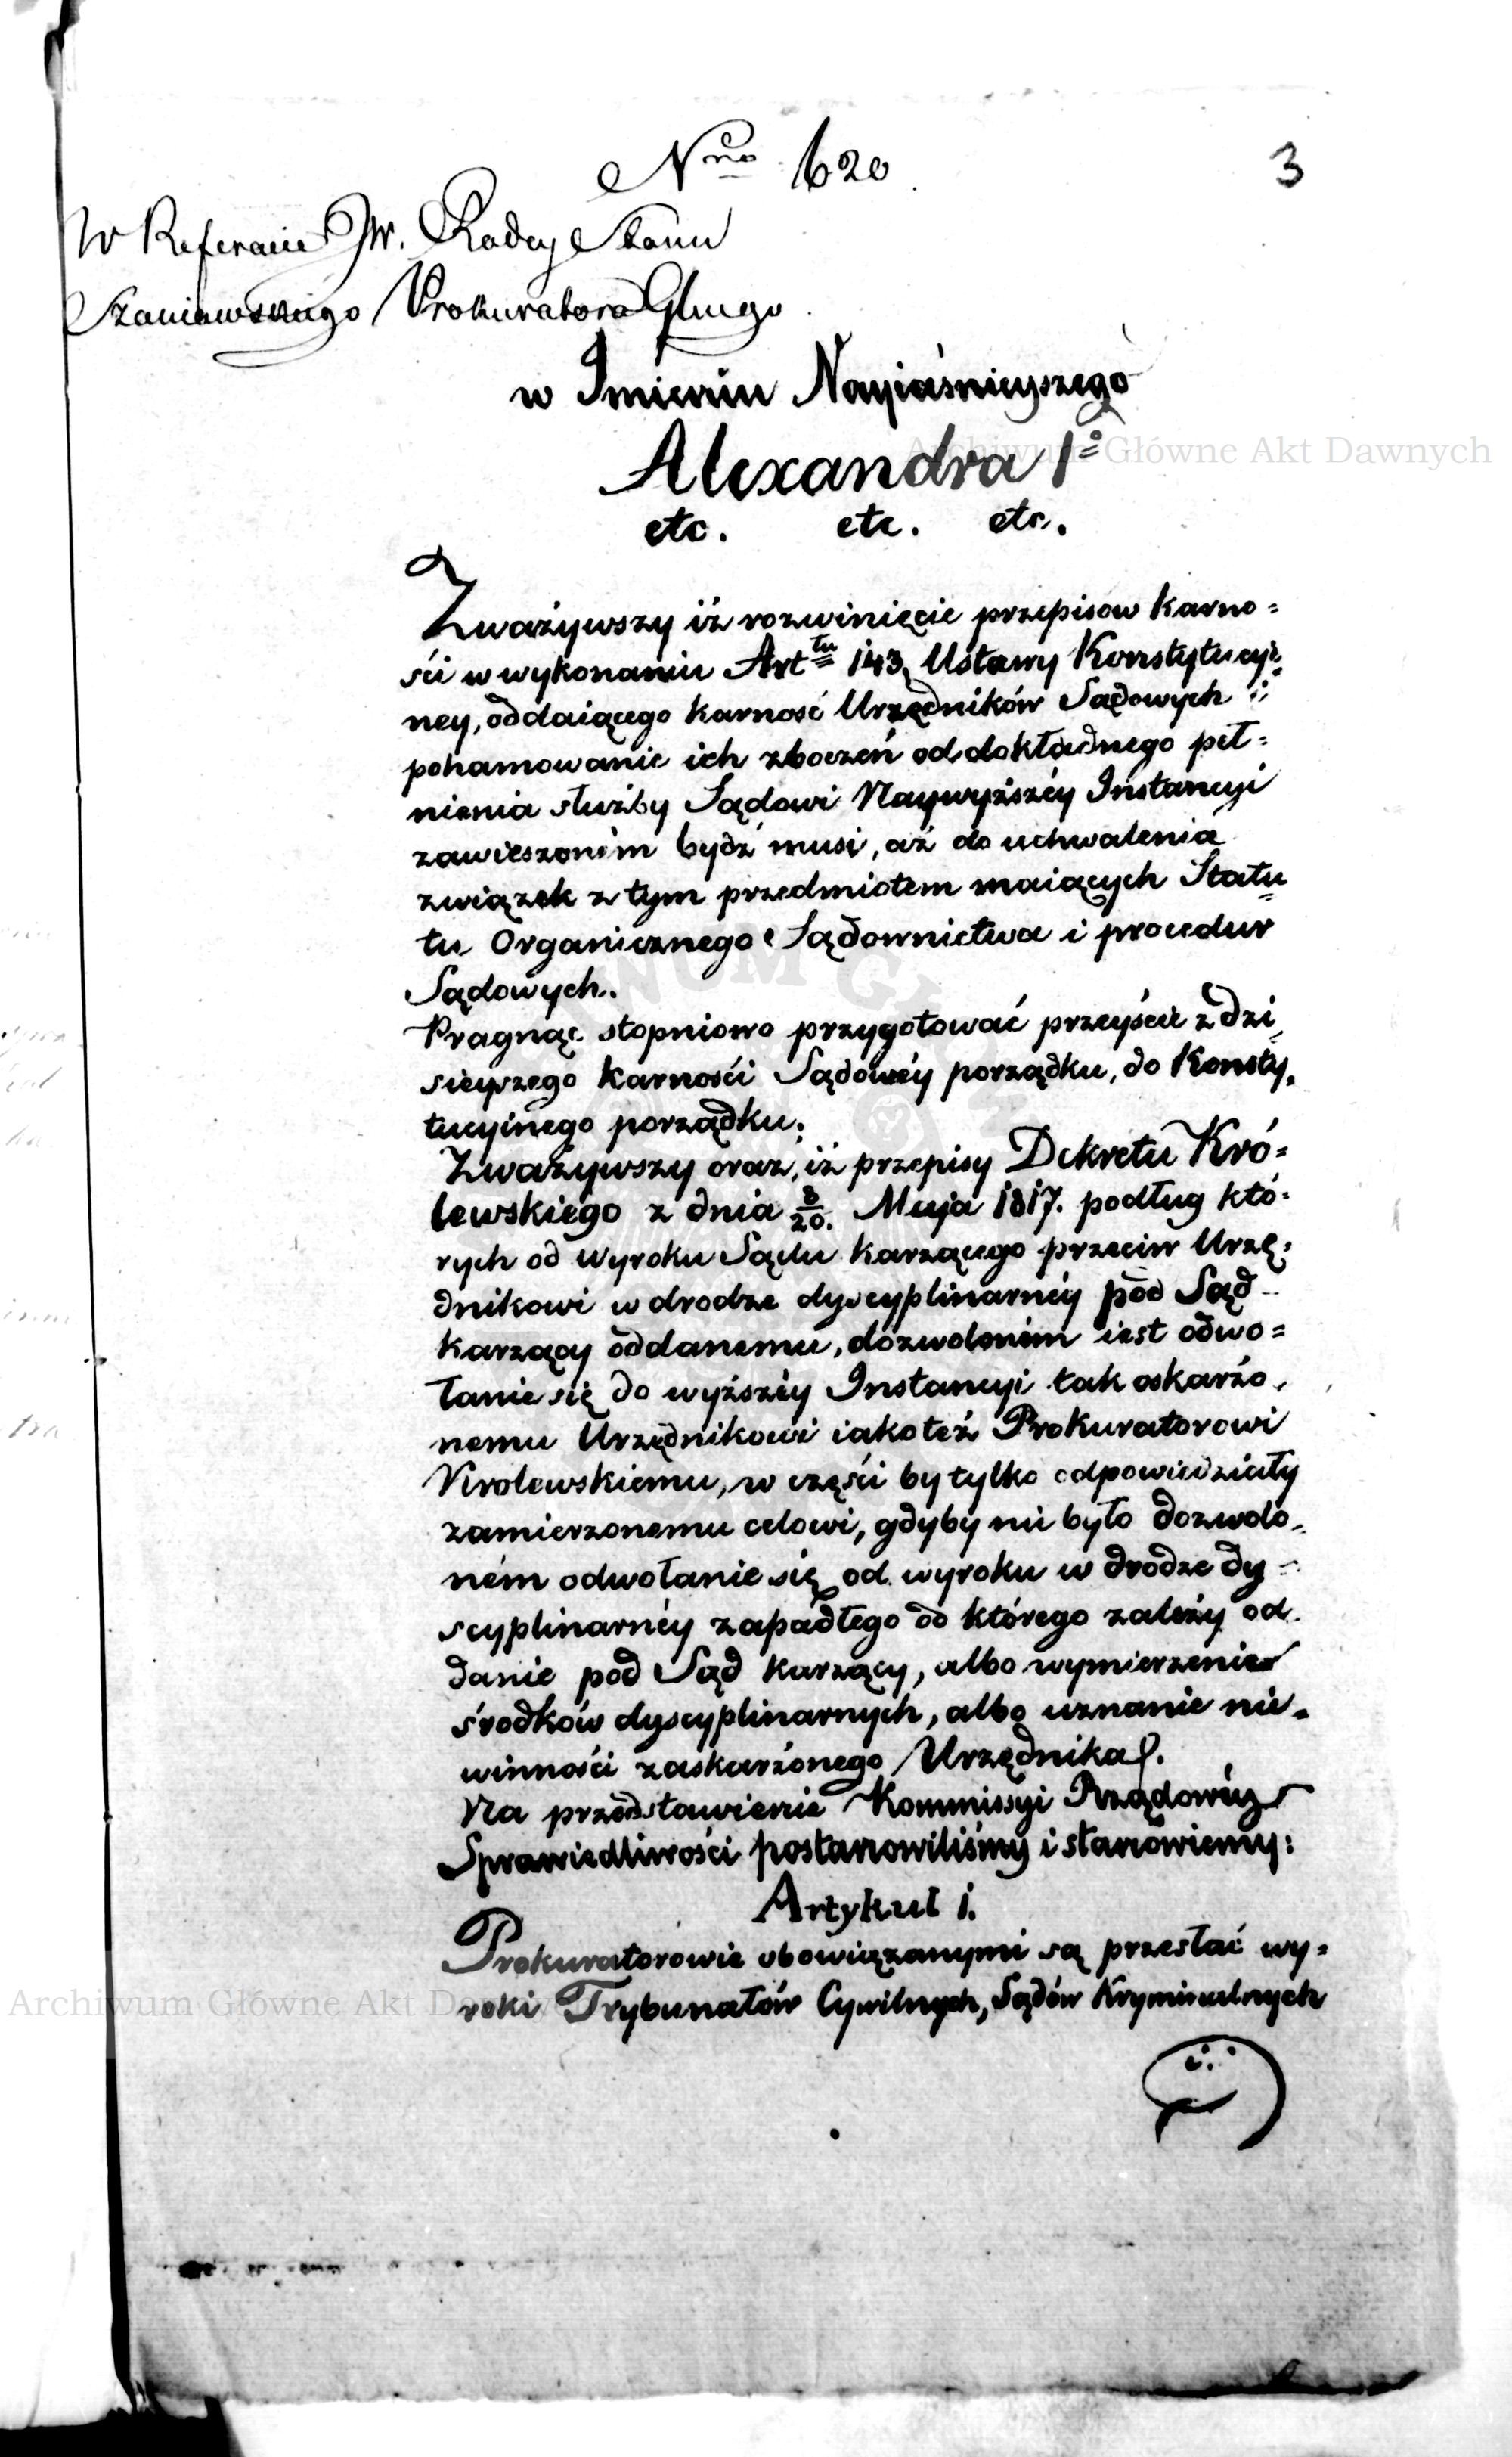 Nro 620
3
W Referacie JW. Radcy Stanu
Szaniawskiego Prokuratora Głnego
w Imieniu Nayiaśnieyszego
Alexandra Igo
etc. etc. etc.
Zważywszy iż rozwinięcie przepisow karno=
ści w wykonaniu Arttu 143. Ustawy Konstytucyi=
ney, oddaiącego karność Urzędników Sądowych i
pohamowanie ich zboczeń od dokładnego peł=
nienia służby Sądowi Naywyższéy Instancyi
zawieszoném bydź musi, aż do uchwalenia
związek z tym przedmiotem maiących Statu=
tu Organicznego Sądownictwa i procedur
Sądowych.
Pragnąc stopniowo przygotować przeyście z dzi=
sieyszego karności Sądowéy porządku, do Konsty=
tucyinego porządku;
Zważywszy oraz, iż przepisy Dekretu Kró=
lewskiego z dnia 8/20. Maja 1817. podług któ=
rych od wyroku Sądu karzącego przeciw Urzę=
dnikowi w drodze dyscyplinarnéy pod Sąd
karzący oddanemu, dozwoloném iest odwo=
łanie się do wyższéy Instancyi tak oskarżo=
nemu Urzędnikowi iakoteż Prokuratorowi
Krolewskiemu, w części by tylko odpowiedziały
zamierzonemu celowi, gdyby nie było dozwolo=
ném odwołanie się od wyroku w drodze dy=
scyplinarnéy zapadłego od którego zależy od=
danie pod Sąd karzący, albo wymierzenie
środków dyscyplinarnych, albo uznanie nie=
winności zaskarżonego Urzędnika.
Na przedstawienie Kommissyi Rządowéy
Sprawiedliwości postanowiliśmy i stanowiemy:
Artykuł 1.
Prokuratorowie obowiązanymi są przesłać wy=
roki Trybunałów Cywilnych, Sądów Kryminalnych
Archiwum Główne Akt Dawnych
Archiwum Główne Akt Dawnych